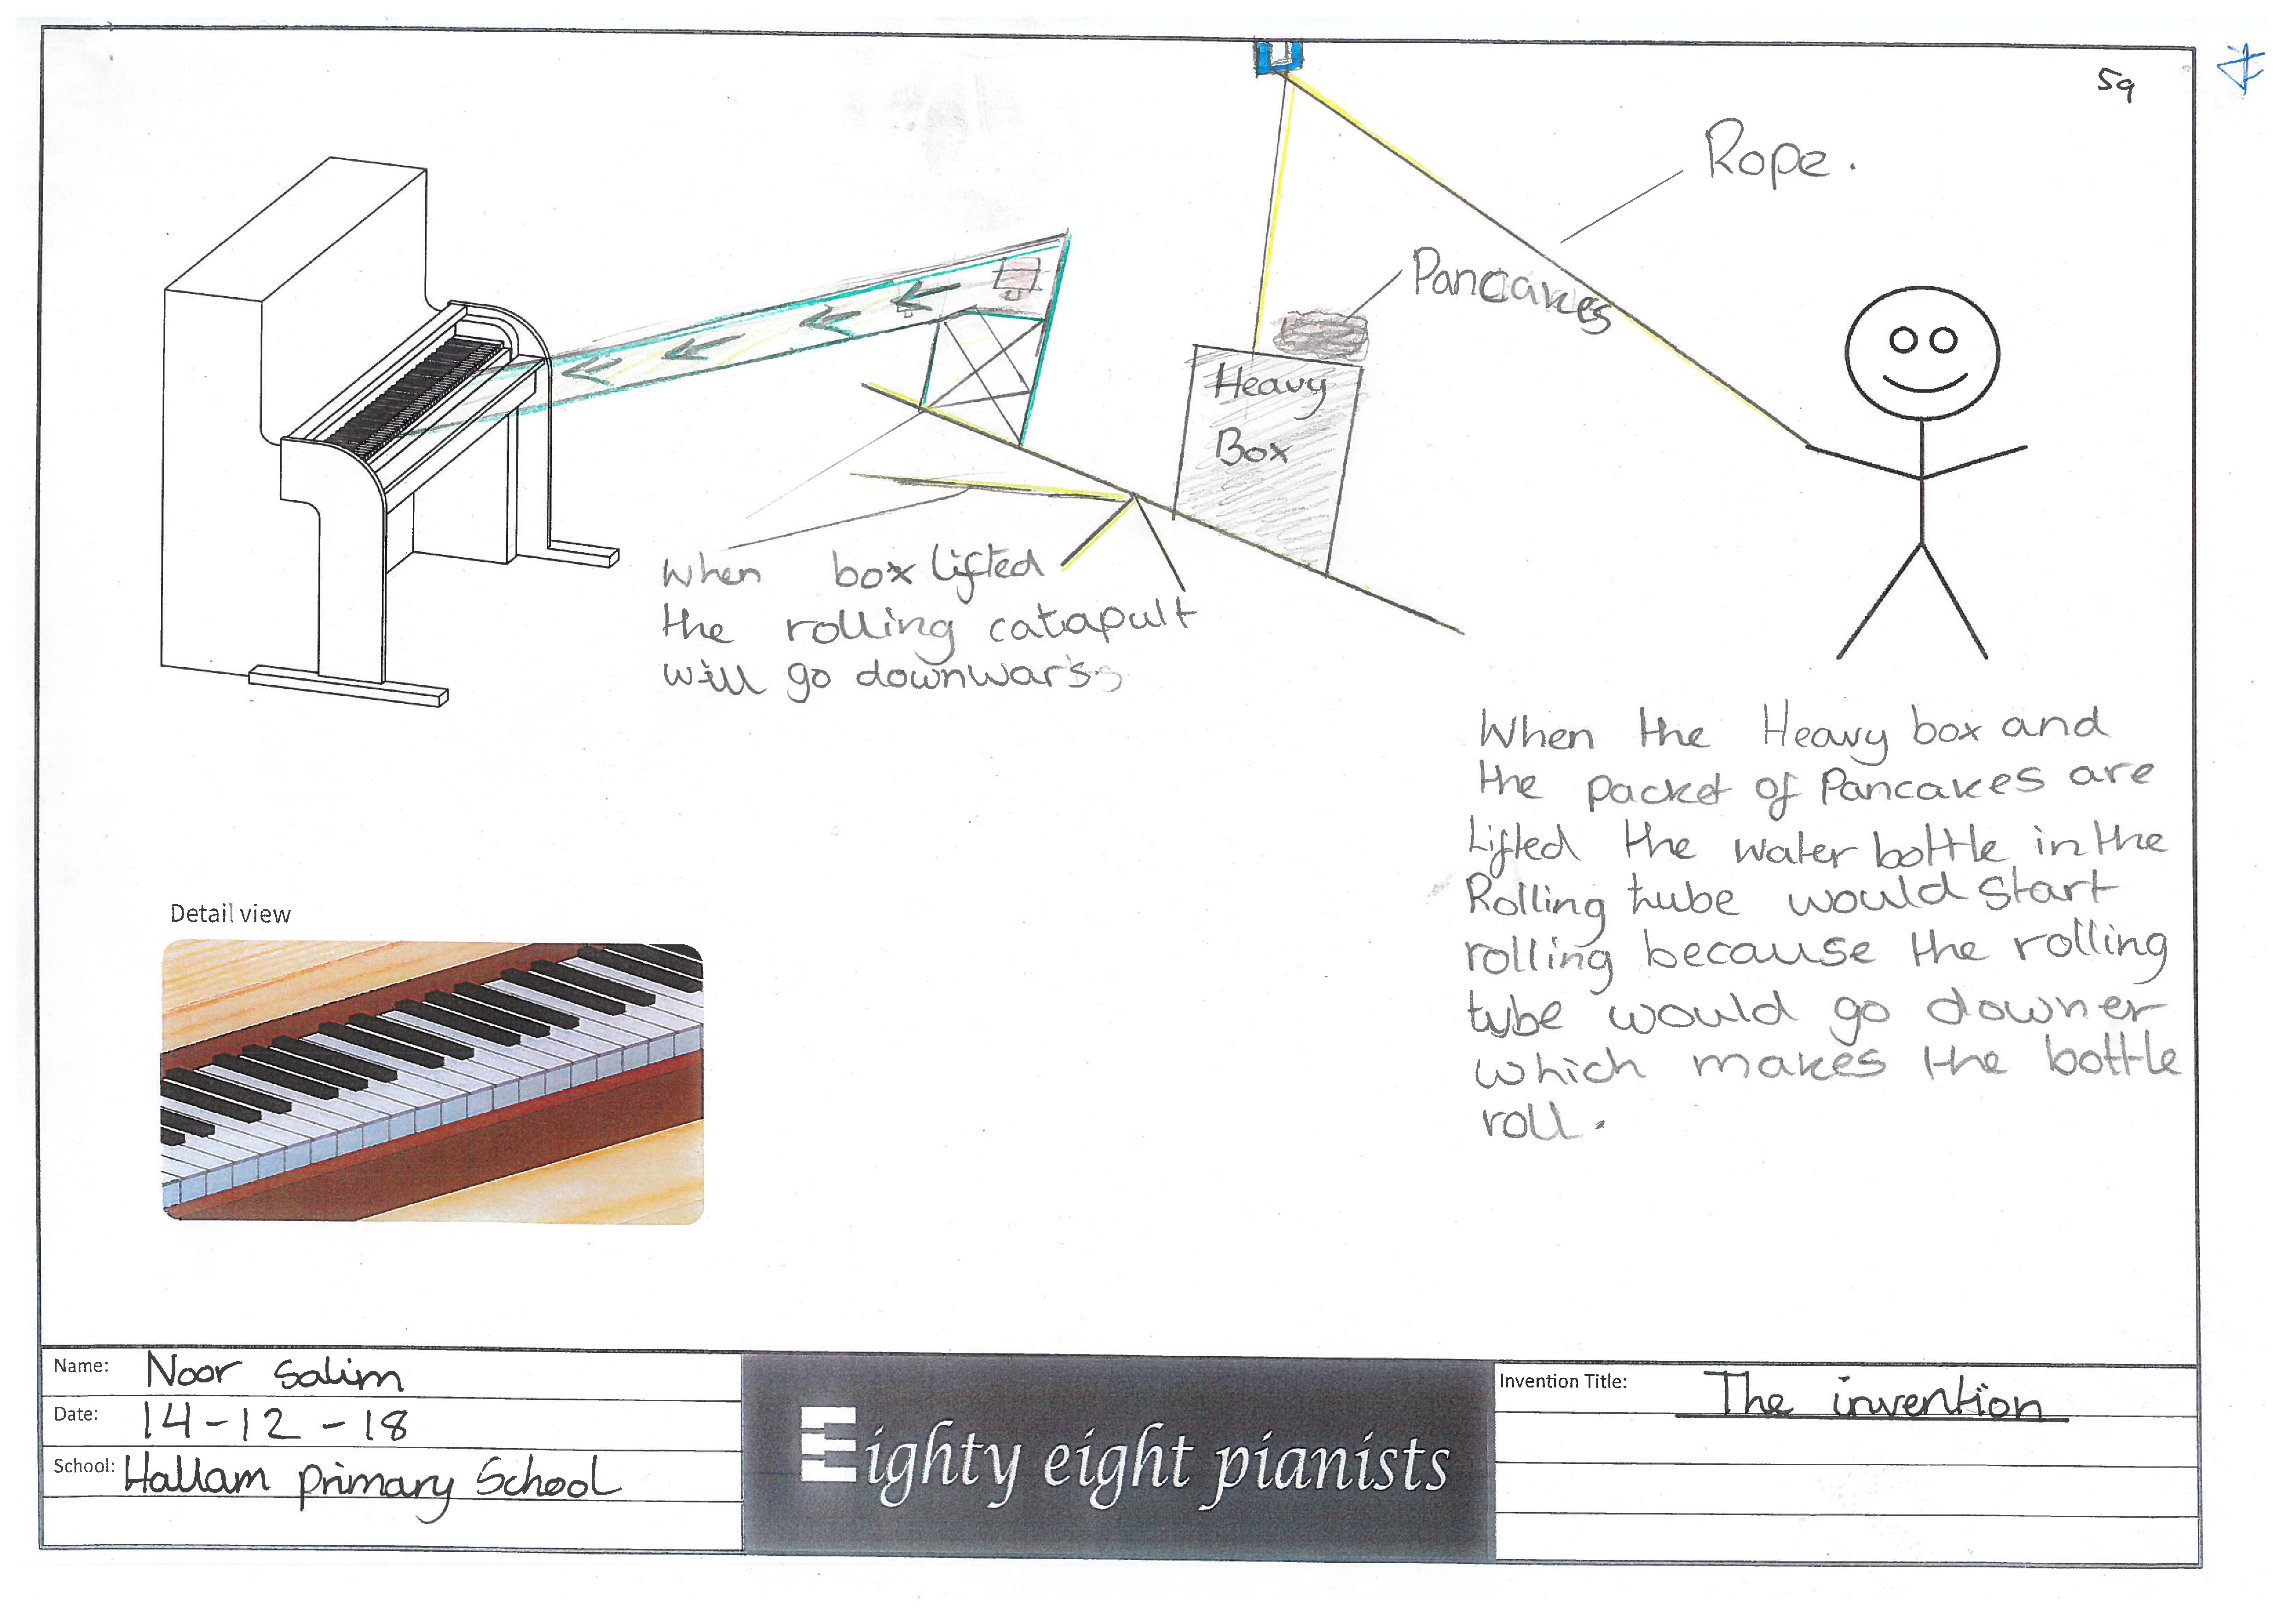 59
Rope.
Pancakes
Heavy
Box
When box lifted
the rolling catapult
will go downwars.
When the Heavy box and
the packet of Pancakes are
Lifted the water bottle in the
Rolling tube would start
rolling because the rolling
tube would go downer
which makes the bottle
roll.
Detail view
Name: Noor Salim
Date: 14-12-18
School: Hallam primary School
Eighty eight pianists
Invention Title: The invention